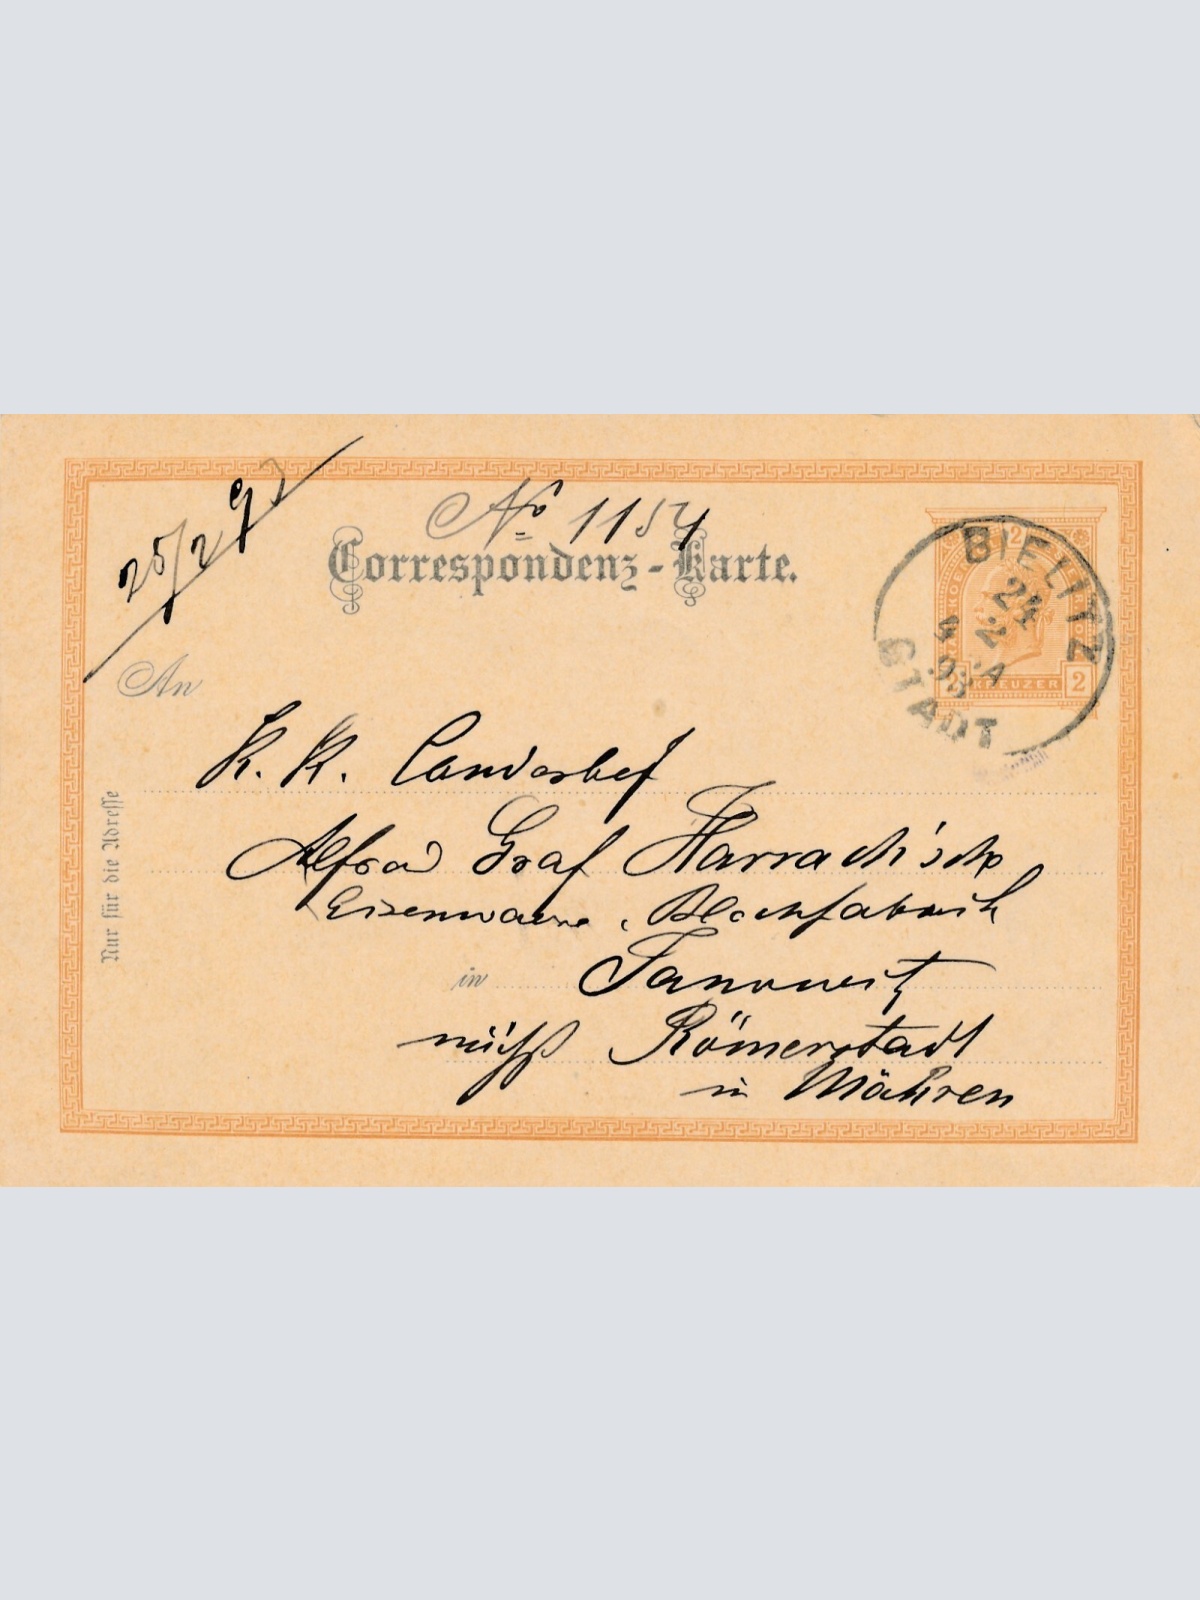 25/2 93
No 1154
Correspondenz-Karte.
BIELITZ
24
2
4 A
93
STADT
2
KREUZER 2
An
K. K. Landesbef
Alfred Graf Harrach'sche
Eisenwaren Blechfabrik
in Janowitz
nächst Römerstadt
in Mähren
Nur für die Adresse